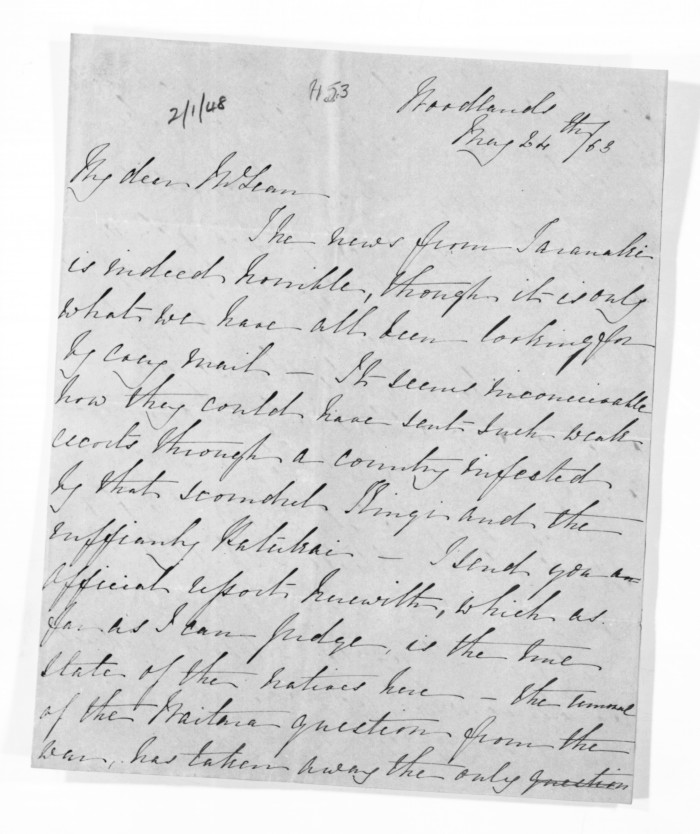 2/1/48
453
Woodlands
May 24th/63
My dear McLean
The news from Taranaki
is indeed horrible, though it is only
what we have all been looking for
by every mail — It seems inconceivable
how they could have sent such weak
escorts through a country infested
by that scoundrel Kingi and the
ruffianly Hatukai — I send you an
Official report herewith, which as
far as I can judge, is the true
state of the natives here — the removal
of the Waitara question from the
war, has taken away the only question